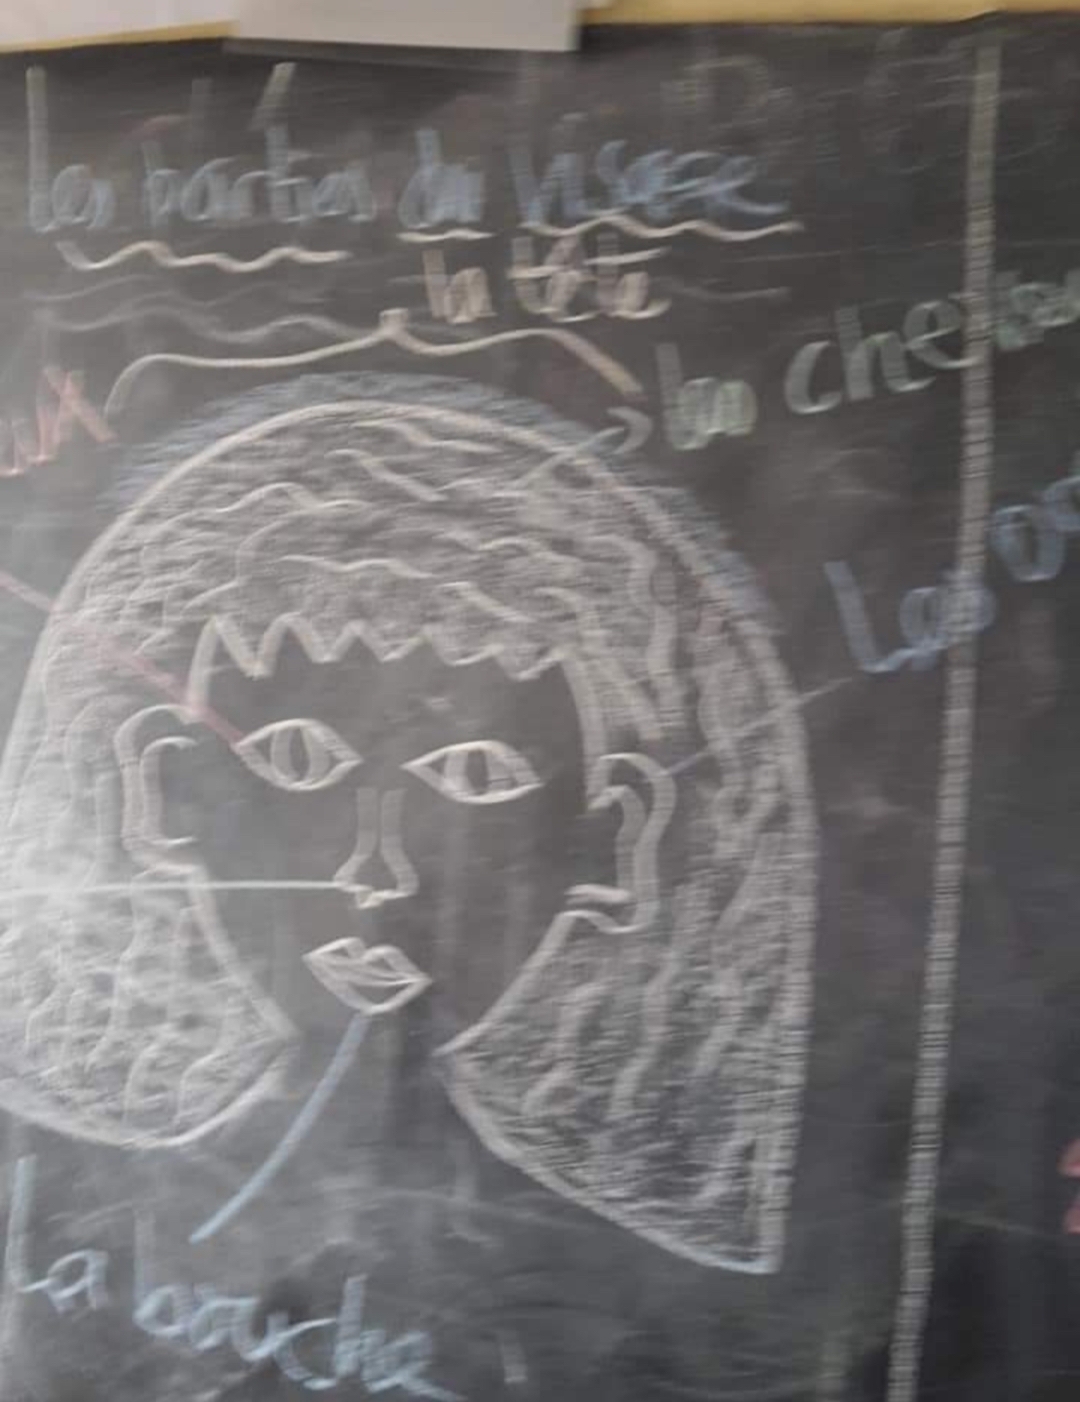 Les parties du visage
la tête
les che
ux
Les o
La bouche